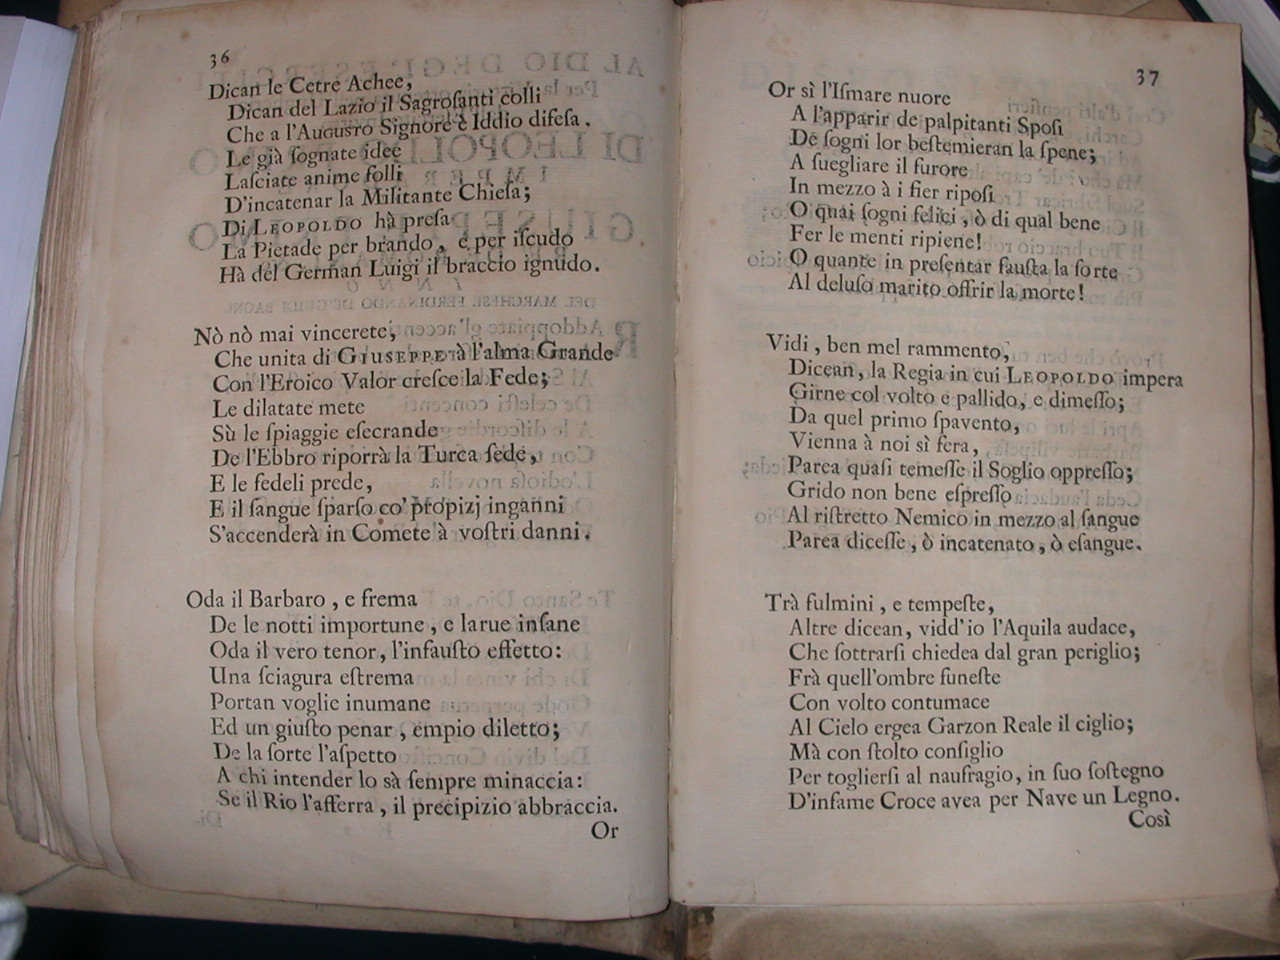 36
Dican le Cetre Achee,
Dican del Lazio il Sagroſanti colli
Che a l'Augusto Signore è Iddio difeſa.
Le già ſognate idee
Laſciate anime folli
D'incatenar la Militante Chieſa;
Di LEOPOLDO hà preſa
La Pietade per brando, e per iſcudo
Hà del German Luigi il braccio ignudo.
Nò nò mai vincerete,
Che unita di GIUSEPPE à l'alma Grande
Con l'Eroico Valor creſce la Fede;
Le dilatate mete
Sù le ſpiaggie eſecrande
De l'Ebbro riporrà la Turca ſede,
E le fedeli prede,
E il ſangue ſparſo co' propizj inganni
S'accenderà in Comete à voſtri danni.
Oda il Barbaro, e frema
De le notti importune, e larue inſane
Oda il vero tenor, l'infauſto effetto:
Una ſciagura eſtrema
Portan voglie inumane
Ed un giuſto penar, empio diletto;
De la ſorte l'aſpetto
A chi intender lo sà ſempre minaccia:
Se il Rio l'afferra, il precipizio abbraccia.
Or
37
Or sì l'Iſmare nuore
A l'apparir de palpitanti Spoſi
De ſogni lor beſtemieran la ſpene;
A ſuegliare il furore
In mezzo à i fier ripoſi
O quai ſogni felici, ò di qual bene
Fer le menti ripiene!
O quante in preſentar fauſta la ſorte
Al deluſo marito offrir la morte!
Vidi, ben mel rammento,
Dicean, la Regia in cui LEOPOLDO impera
Girne col volto e pallido, e dimeſſo;
Da quel primo ſpavento,
Vienna à noi sì fera,
Parea quaſi temeſſe il Soglio oppreſſo;
Grido non bene eſpreſſo
Al riſtretto Nemico in mezzo al ſangue
Parea diceſſe, ò incatenato, ò eſangue.
Trà fulmini, e tempeſte,
Altre dicean, vidd'io l'Aquila audace,
Che ſottrarſi chiedea dal gran periglio;
Frà quell'ombre funeſte
Con volto contumace
Al Cielo ergea Garzon Reale il ciglio;
Mà con ſtolto conſiglio
Per toglierſi al naufragio, in ſuo ſoſtegno
D'infame Croce avea per Nave un Legno.
Così